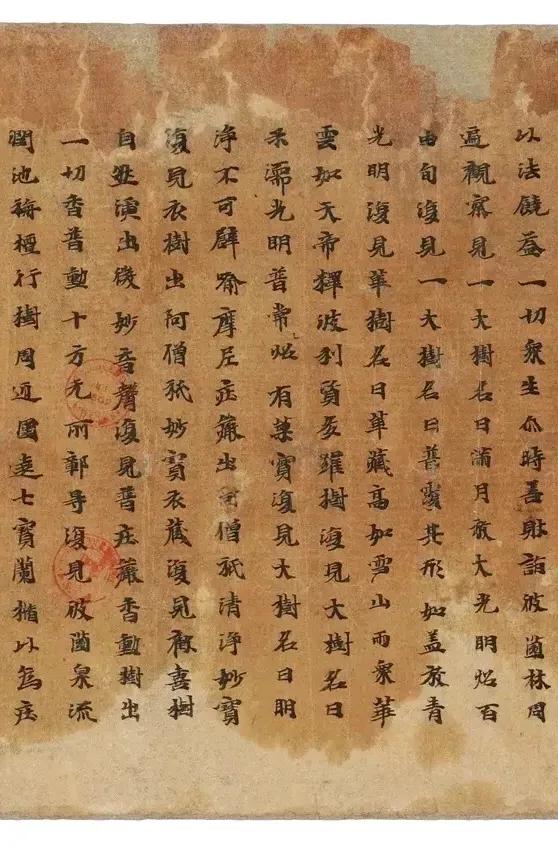 以法饒益一切衆生尒時善財詣彼薗林周
遍觀察見一大樹名曰滿月放大光明炤百
由旬復見一大樹名曰普覆其形如盖放青
光明復見華樹名曰華藏高如雪山雨衆華
雲如天帝釋波利質多羅樹復見大樹名曰
光明普常炤有菓寶復見大樹名曰明
淨不可譬喻摩尼莊嚴出阿僧祇清淨妙寶
復見衣樹出阿僧祇妙寶衣藏復見歡喜樹
自然演出微妙音聲復見普莊嚴香動樹出
一切香普動十方无所鄣导復見彼薗泉流
池栴檀行樹周迊圍遶七寶蘭楯以爲莊